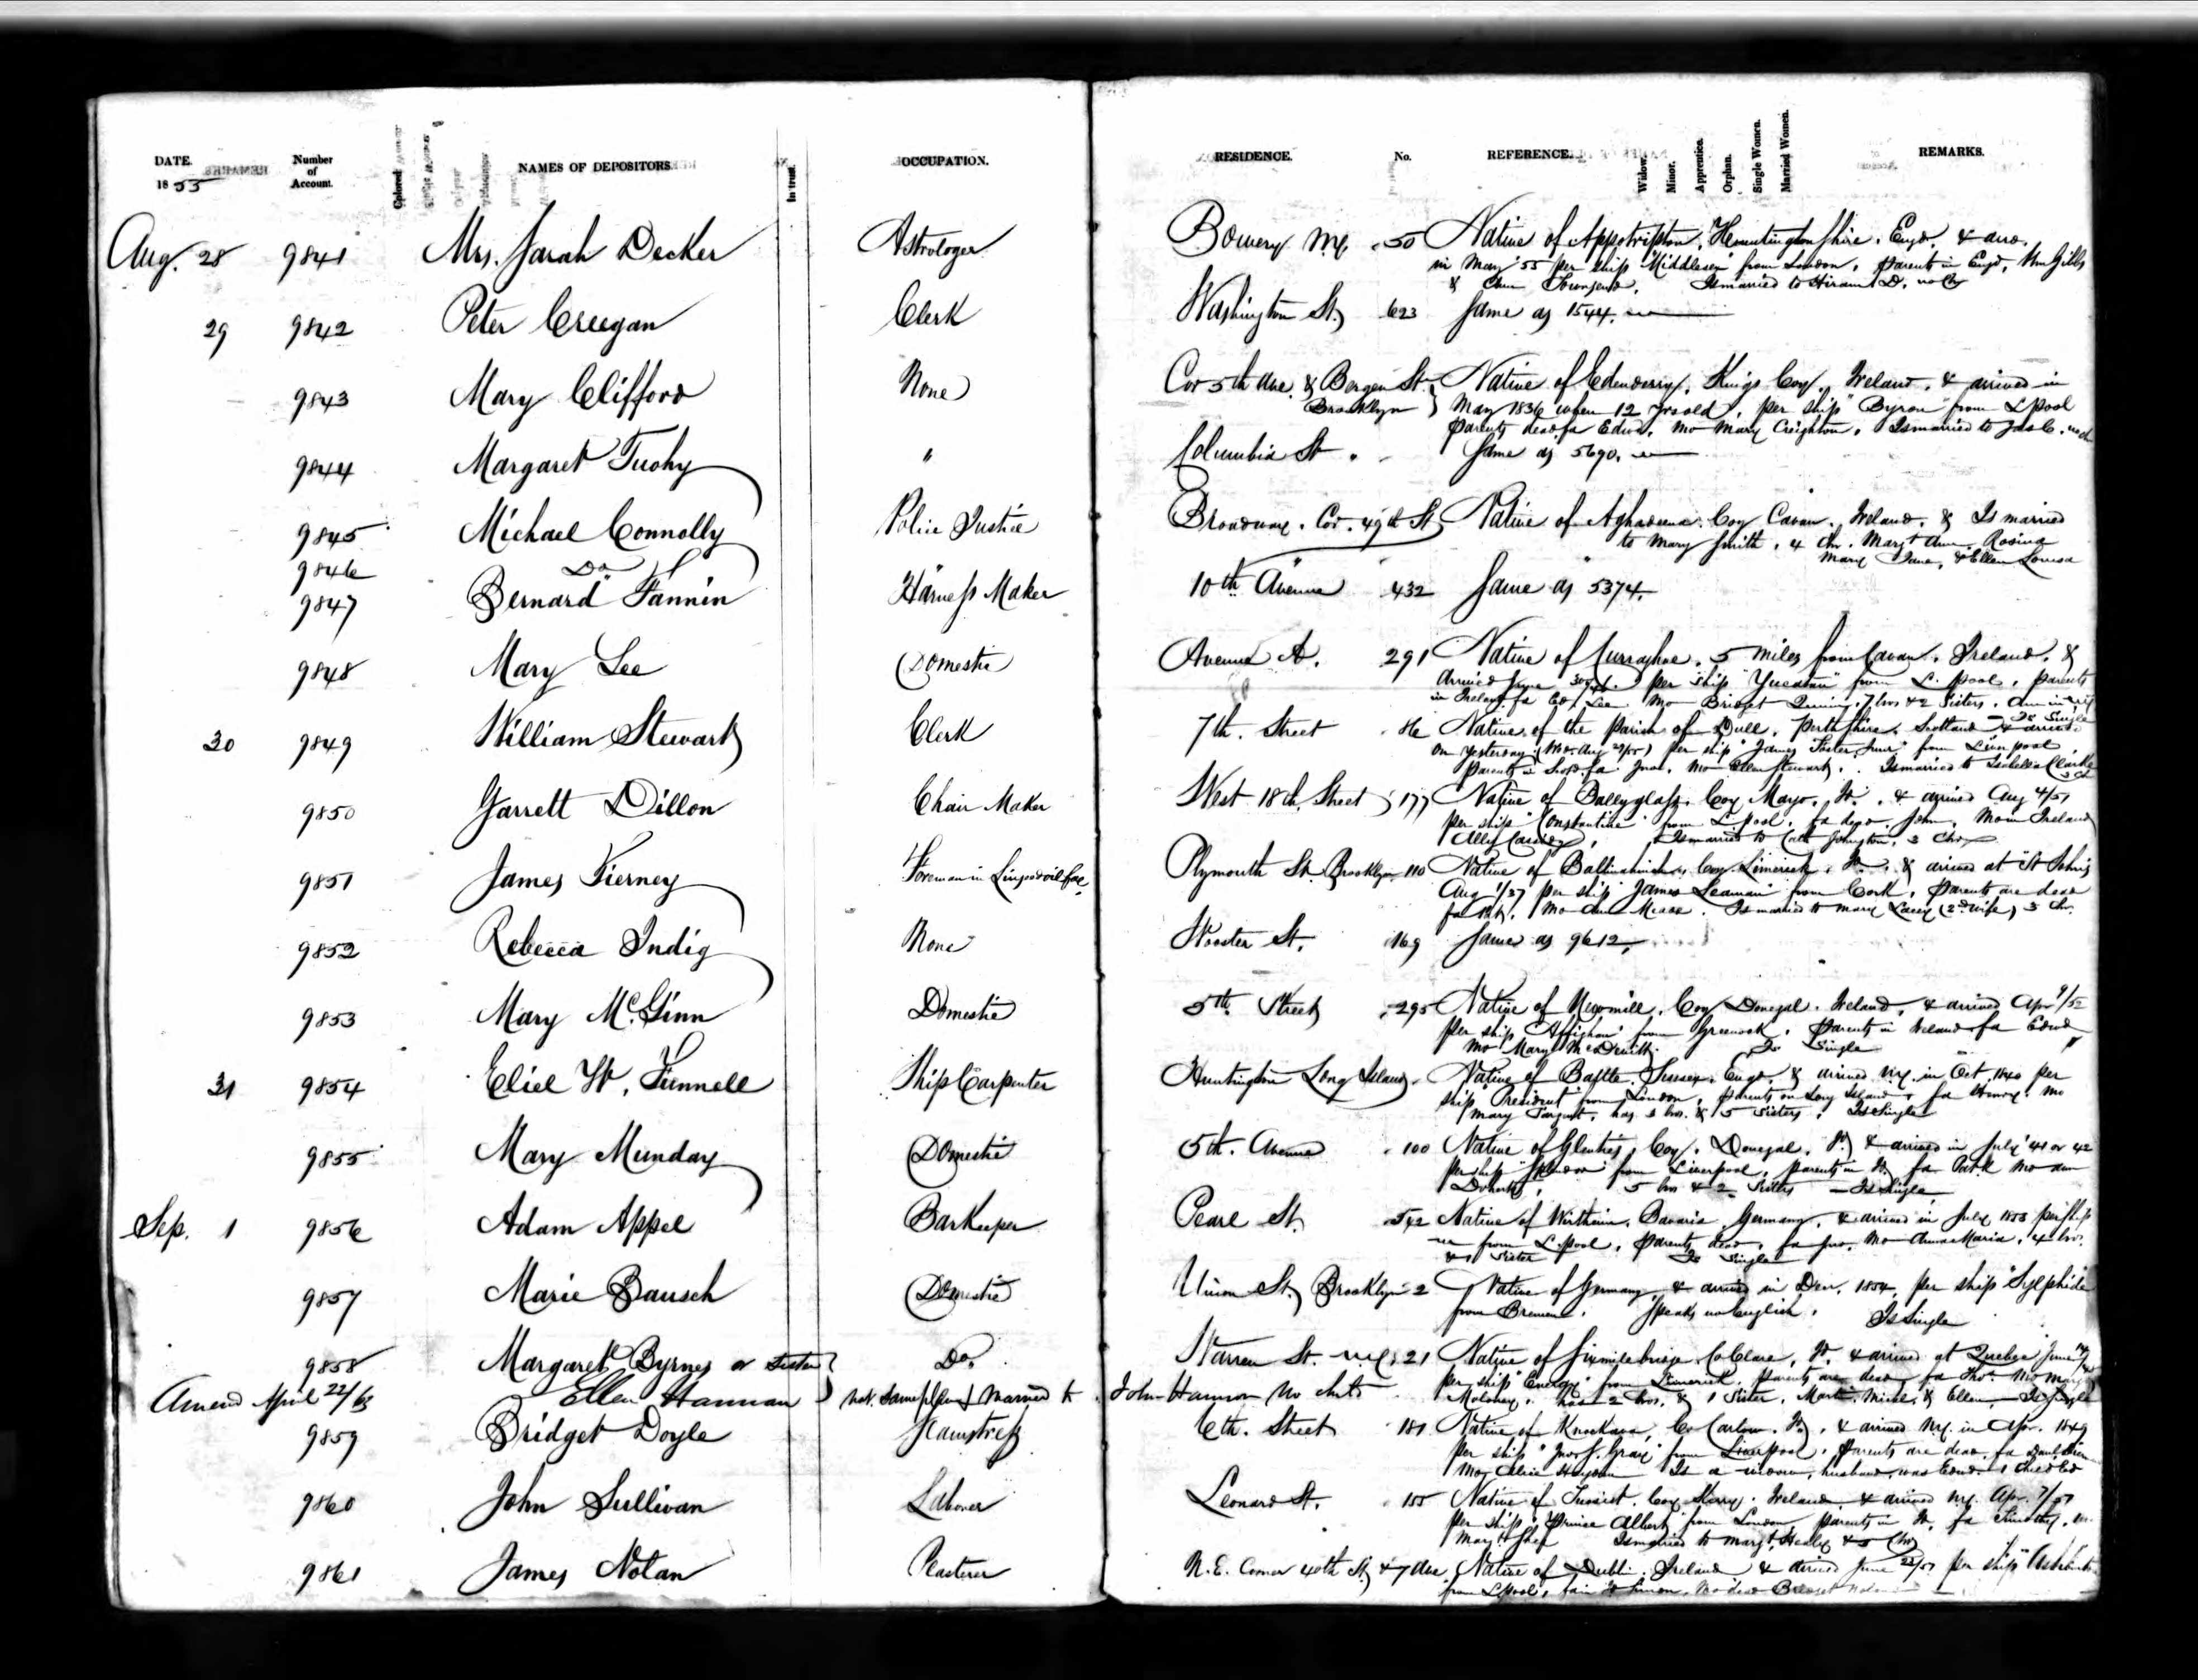 DATE. 1855 Number of Account. Colored NAMES OF DEPOSITORS. In trust. OCCUPATION. RESIDENCE. No. REFERENCE. Widow. Minor. Apprentice. Orphan. Single Women. Married Women. REMARKS.
Aug. 28 9841 Mrs. Sarah Decker Astrologer Bowery N.Y. 50 Native of Huntingdonshire, Engd. & arrd.
in May '55 per ship "Middlesex" from London, parents in Engd, Wm Gibbs
& Townsend. Is married to Hiram D. no Ch
29 9842 Peter Creegan Clerk Washington St. 623 Same as 1544.
9843 Mary Clifford None Cor 5th Ave. & Bergen St. Brooklyn Native of Edenderry, Kings Coy. Ireland, & arrived in
May 1836 when 12 yrs old, per ship "Byron" from L'pool
parents dead fa Edwd. mo Mary Creighton. Is married to Jas C. no ch
9844 Margaret Tuohy " Columbia St " Same as 5690.
9845 Michael Connolly Police Justice Broadway. Cor. 49th St Native of Coy Cavan. Ireland. & Is married
to Mary Smith, 4 Chr. Margt Ann Rosina
9846 Do " " Mary Jane, & Ellen Louisa
9847 Bernard Fannin Harness Maker 10th Avenue 432 Same as 5374.
9848 Mary Lee Domestic Avenue A. 291 Native of 5 miles from Cavan. Ireland. &
Arrived June per ship "Yucatan" from L. pool. parents
in Ireland fa Ed. Lee Mo Bridget 7 bros & 2 Sisters. Ann in NY
Is Single
30 9849 William Stewart Clerk 7th. Street 86 Native of the Parish of Dull. Perthshire. Scotland & arrived
on yesterday per ship "James Foster Junr" from Liverpool.
parents in Scotd. fa Jno. Mo Ellen Stewart. Is married to Isabella Clarke
9850 Garrett Dillon Chair Maker West 18th. Street 177 Native of Ballyglass. Coy Mayo. Id. & arrived Aug 4/51
per ship "Constantine" from L'pool. fa dead John. Mo in Ireland
Ally Is married to Cath Johnston, 3 Chr
9851 James Tierney Foreman in Linseed oil fac. Plymouth St. Brooklyn 110 Native of Coy Limerick. Id. & arrived at "St Johns
Aug 1/37 per ship "James Leaman" from Cork. Parents are dead
fa Mo Ann Meade. Is married to Mary Lacey (2nd wife) 3 Chr.
9852 Rebecca Indig None Wooster St. 169 Same as 9612.
9853 Mary McGinn Domestic 5th. Street 295 Native of Newmills, Coy Donegal. Ireland, & arrived Apr 9/52
per ship from Greenock. Parents in Ireland fa Edwd
mo Mary McDevitt. Is Single "
31 9854 Eliel W. Funnell Ship Carpenter Huntington Long Island Native of Sussex. Engd. & arrived N.Y. in Oct. 1840 per
ship "President" from London, parents on Long Island. fa Henry. mo
Mary has bros. & 5 Sisters. Is Single
9855 Mary Munday Domestic 5th. Avenue 100 Native of Glenties, Coy. Donegal. Id. & arrived in July '41 or 42
per ship from Liverpool, parents in Id. fa Patk mo Ann
5 bros & 2 Sisters - Is Single
Sep. 1 9856 Adam Appel Barkeeper Pearl St. 542 Native of Bavaria. Germany, & arrived in July 1853 per ship
from L'pool. parents dead, fa Jno. Mo Anna Maria, 4 bro.
& 1 Sister Is Single
9857 Marie Bausch Domestic Union St. Brooklyn 2 Native of Germany & arrived in Decr. 1854, per ship "Sylphide"
from Bremen. Speaks no English. Is Single
9858 Margaret Byrnes or Sister Do. Warren St. N.Y. 21 Native of Sixmilebridge Co Clare, Id. & arrived at Quebec June
Amend April 22/63 Ellen Hannan nat. same place & Married to John Hannon no chld per ship "Energy" from Limerick. Parents are dead fa Thos. mo Mary
Moloney. has 2 bros. & 1 Sister, Michl. & Ellen. Is Single
9859 Bridget Doyle Seamstress 6th. Street 181 Native of Co Carlow. Id. & arrived N.Y. in Apr. 1849
per ship from Liverpool. Parents are dead. fa
Mo Alice Is a widow, husband was Edwd. 1 child
9860 John Sullivan Laborer Leonard St. 155 Native of Coy Kerry. Ireland & arrived N.Y. Apr.
per ship "Prince Albert" from London parents in Id. fa Timothy. m.
Mary Shea Is married to Margt. Healy
9861 James Nolan Plasterer N.E. Corner 40th St. & 7 Ave. Native of Dublin. Ireland & arrived June per ship
from L'pool. Mo dead Bridget Nolan